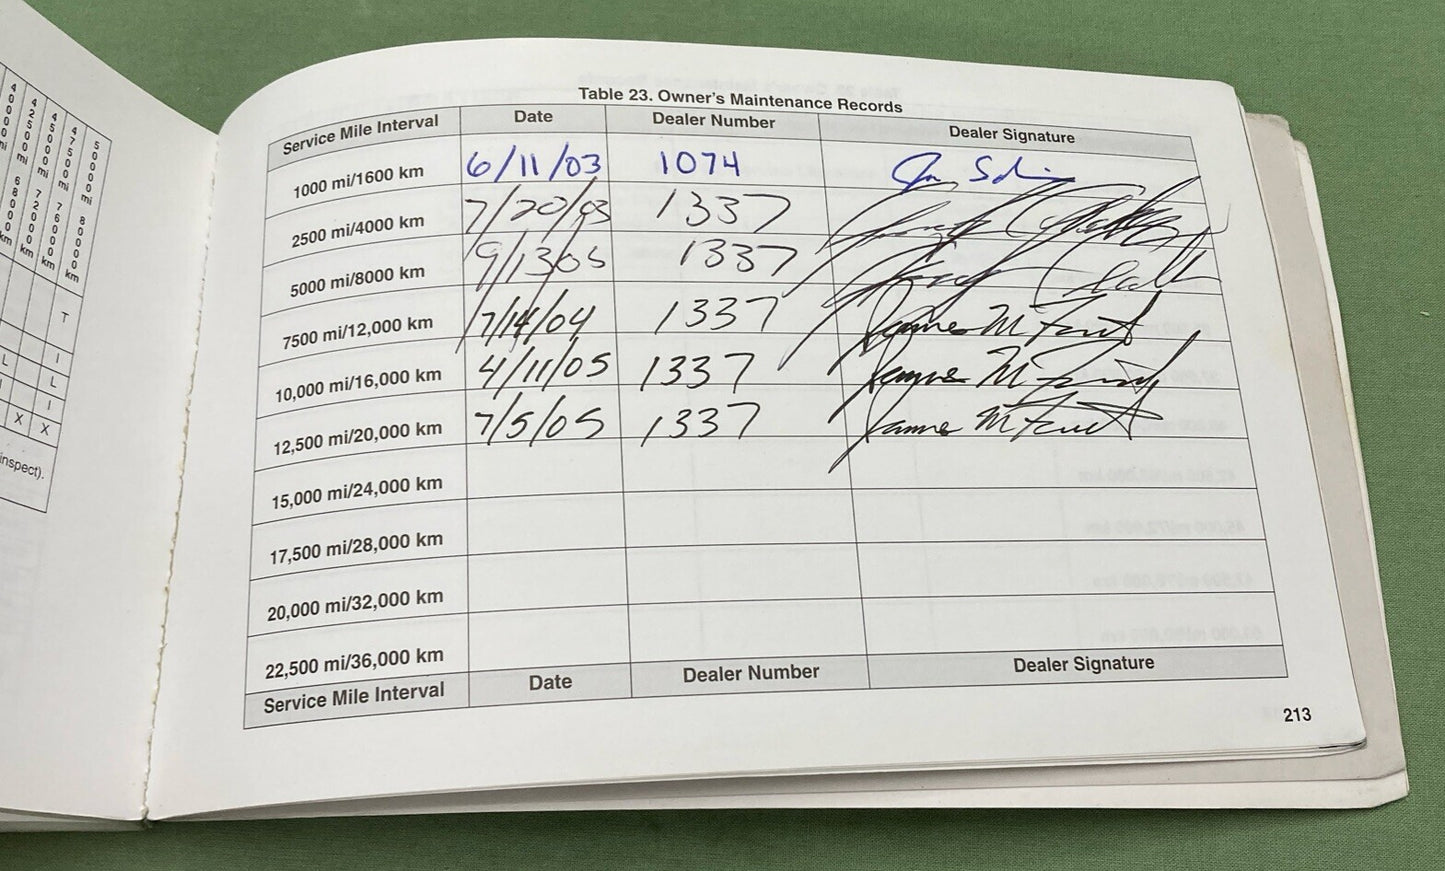 Table 23. Owner's Maintenance Records
Service Mile Interval Date Dealer Number Dealer Signature
1000 mi/1600 km 6/11/03 1074
2500 mi/4000 km 7/20/03 1337
5000 mi/8000 km 1337
7500 mi/12,000 km 7/14/04 1337 James M
10,000 mi/16,000 km 4/11/05 1337 James M
12,500 mi/20,000 km 7/5/05 1337 James M
15,000 mi/24,000 km
17,500 mi/28,000 km
20,000 mi/32,000 km
22,500 mi/36,000 km
Service Mile Interval Date Dealer Number Dealer Signature
213
42500 mi 72000 km
45000 mi 76000 km
50000 mi 80000 km
T
I
L L
I I
X X
inspect).